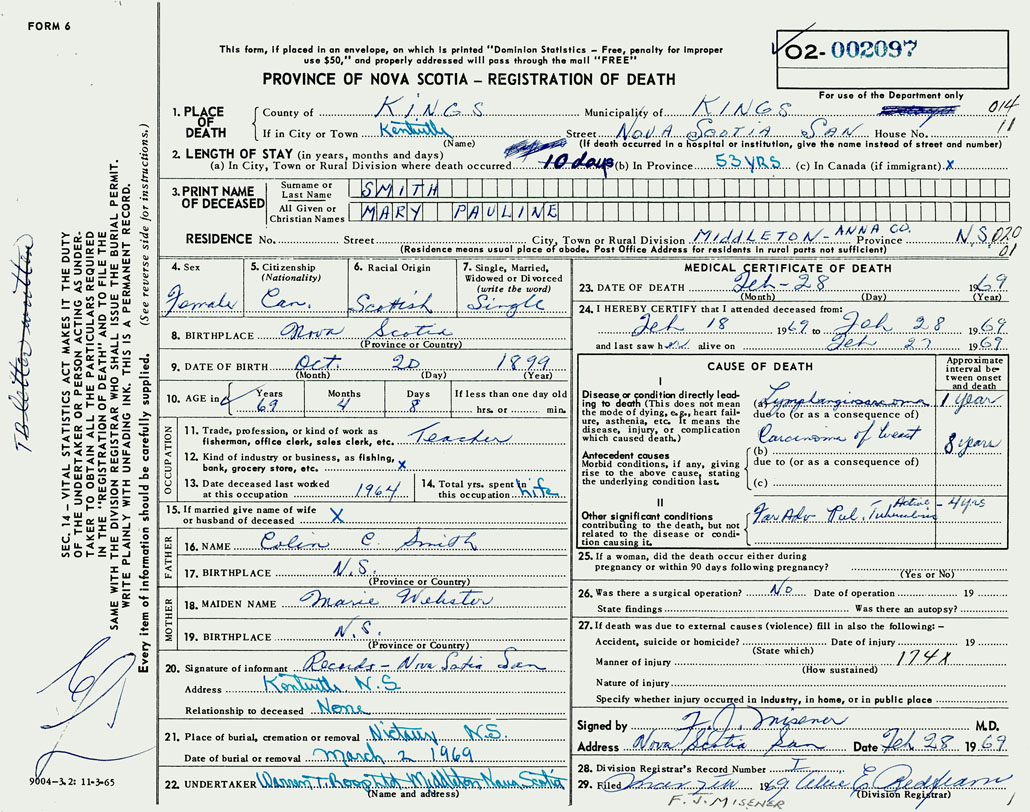 FORM 6
This form, if placed in an envelope, on which is printed "Dominion Statistics – Free, penalty for improper
use $50," and properly addressed will pass through the mail "FREE"
PROVINCE OF NOVA SCOTIA – REGISTRATION OF DEATH
O2-002097
For use of the Department only
014
11
1. PLACE OF DEATH
County of KINGS Municipality of KINGS
If in City or Town Kentville Street NOVA SCOTIA SAN House No.
(Name) (If death occurred in a hospital or institution, give the name instead of street and number)
2. LENGTH OF STAY (in years, months and days)
(a) In City, Town or Rural Division where death occurred 10 days (b) In Province 53 YRS (c) In Canada (if immigrant) x
3. PRINT NAME OF DECEASED
Surname or Last Name SMITH
All Given or Christian Names MARY PAULINE
RESIDENCE No. Street City, Town or Rural Division MIDDLETON - ANNA CO. Province N.S. 020
01
(Residence means usual place of abode. Post Office Address for residents in rural parts not sufficient)
4. Sex Female
5. Citizenship (Nationality) Can.
6. Racial Origin Scottish
7. Single, Married, Widowed or Divorced (write the word) Single
8. BIRTHPLACE Nova Scotia
(Province or Country)
9. DATE OF BIRTH Oct. 20 1899
(Month) (Day) (Year)
10. AGE in Years 69 Months 4 Days 8 If less than one day old hrs. or min.
OCCUPATION
11. Trade, profession, or kind of work as fisherman, office clerk, sales clerk, etc. Teacher
12. Kind of industry or business, as fishing, bank, grocery store, etc. x
13. Date deceased last worked at this occupation 1964
14. Total yrs. spent in this occupation life
15. If married give name of wife or husband of deceased X
FATHER
16. NAME Colin C. Smith
17. BIRTHPLACE N.S.
(Province or Country)
MOTHER
18. MAIDEN NAME Marie Webster
19. BIRTHPLACE N.S.
(Province or Country)
20. Signature of informant Records – Nova Scotia San
Address Kentville N.S.
Relationship to deceased None
21. Place of burial, cremation or removal Nictaux N.S.
Date of burial or removal March 2 1969
22. UNDERTAKER Warren T. Roop Ltd Middleton Nova Scotia
(Name and address)
MEDICAL CERTIFICATE OF DEATH
23. DATE OF DEATH Feb - 28 1969
(Month) (Day) (Year)
24. I HEREBY CERTIFY that I attended deceased from:
Feb 18 1969 to Feb 28 1969
and last saw her alive on Feb 27 1969
CAUSE OF DEATH
Approximate interval between onset and death
I
Disease or condition directly leading to death (This does not mean the mode of dying, e.g., heart failure, asthenia, etc. It means the disease, injury, or complication which caused death.)
(a) 1 year
due to (or as a consequence of)
Carcinoma of breast
(b) 8 years
due to (or as a consequence of)
(c)
Antecedent causes
Morbid conditions, if any, giving rise to the above cause, stating the underlying condition last.
II
Other significant conditions contributing to the death, but not related to the disease or condition causing it.
Far Adv Pul. Tuberculosis Active – 4 yrs
25. If a woman, did the death occur either during pregnancy or within 90 days following pregnancy?
(Yes or No)
26. Was there a surgical operation? No Date of operation 19
State findings Was there an autopsy?
27. If death was due to external causes (violence) fill in also the following: –
Accident, suicide or homicide? Date of injury 19
(State which)
Manner of injury 174X
(How sustained)
Nature of injury
Specify whether injury occurred in industry, in home, or in public place
Signed by F. J. Misener M.D.
Address Nova Scotia San Date Feb 28 1969
28. Division Registrar's Record Number I
29. Filed 1969
(Division Registrar)
F. J. MISENER
TB letter written
SEC. 14 – VITAL STATISTICS ACT MAKES IT THE DUTY
OF THE UNDERTAKER OR PERSON ACTING AS UNDER-
TAKER TO OBTAIN ALL THE PARTICULARS REQUIRED
IN THE "REGISTRATION OF DEATH" AND TO FILE THE
SAME WITH THE DIVISION REGISTRAR WHO SHALL ISSUE THE BURIAL PERMIT.
WRITE PLAINLY WITH UNFADING INK. THIS IS A PERMANENT RECORD.
Every item of information should be carefully supplied. (See reverse side for instructions.)
9004-3.2: 11-3-65